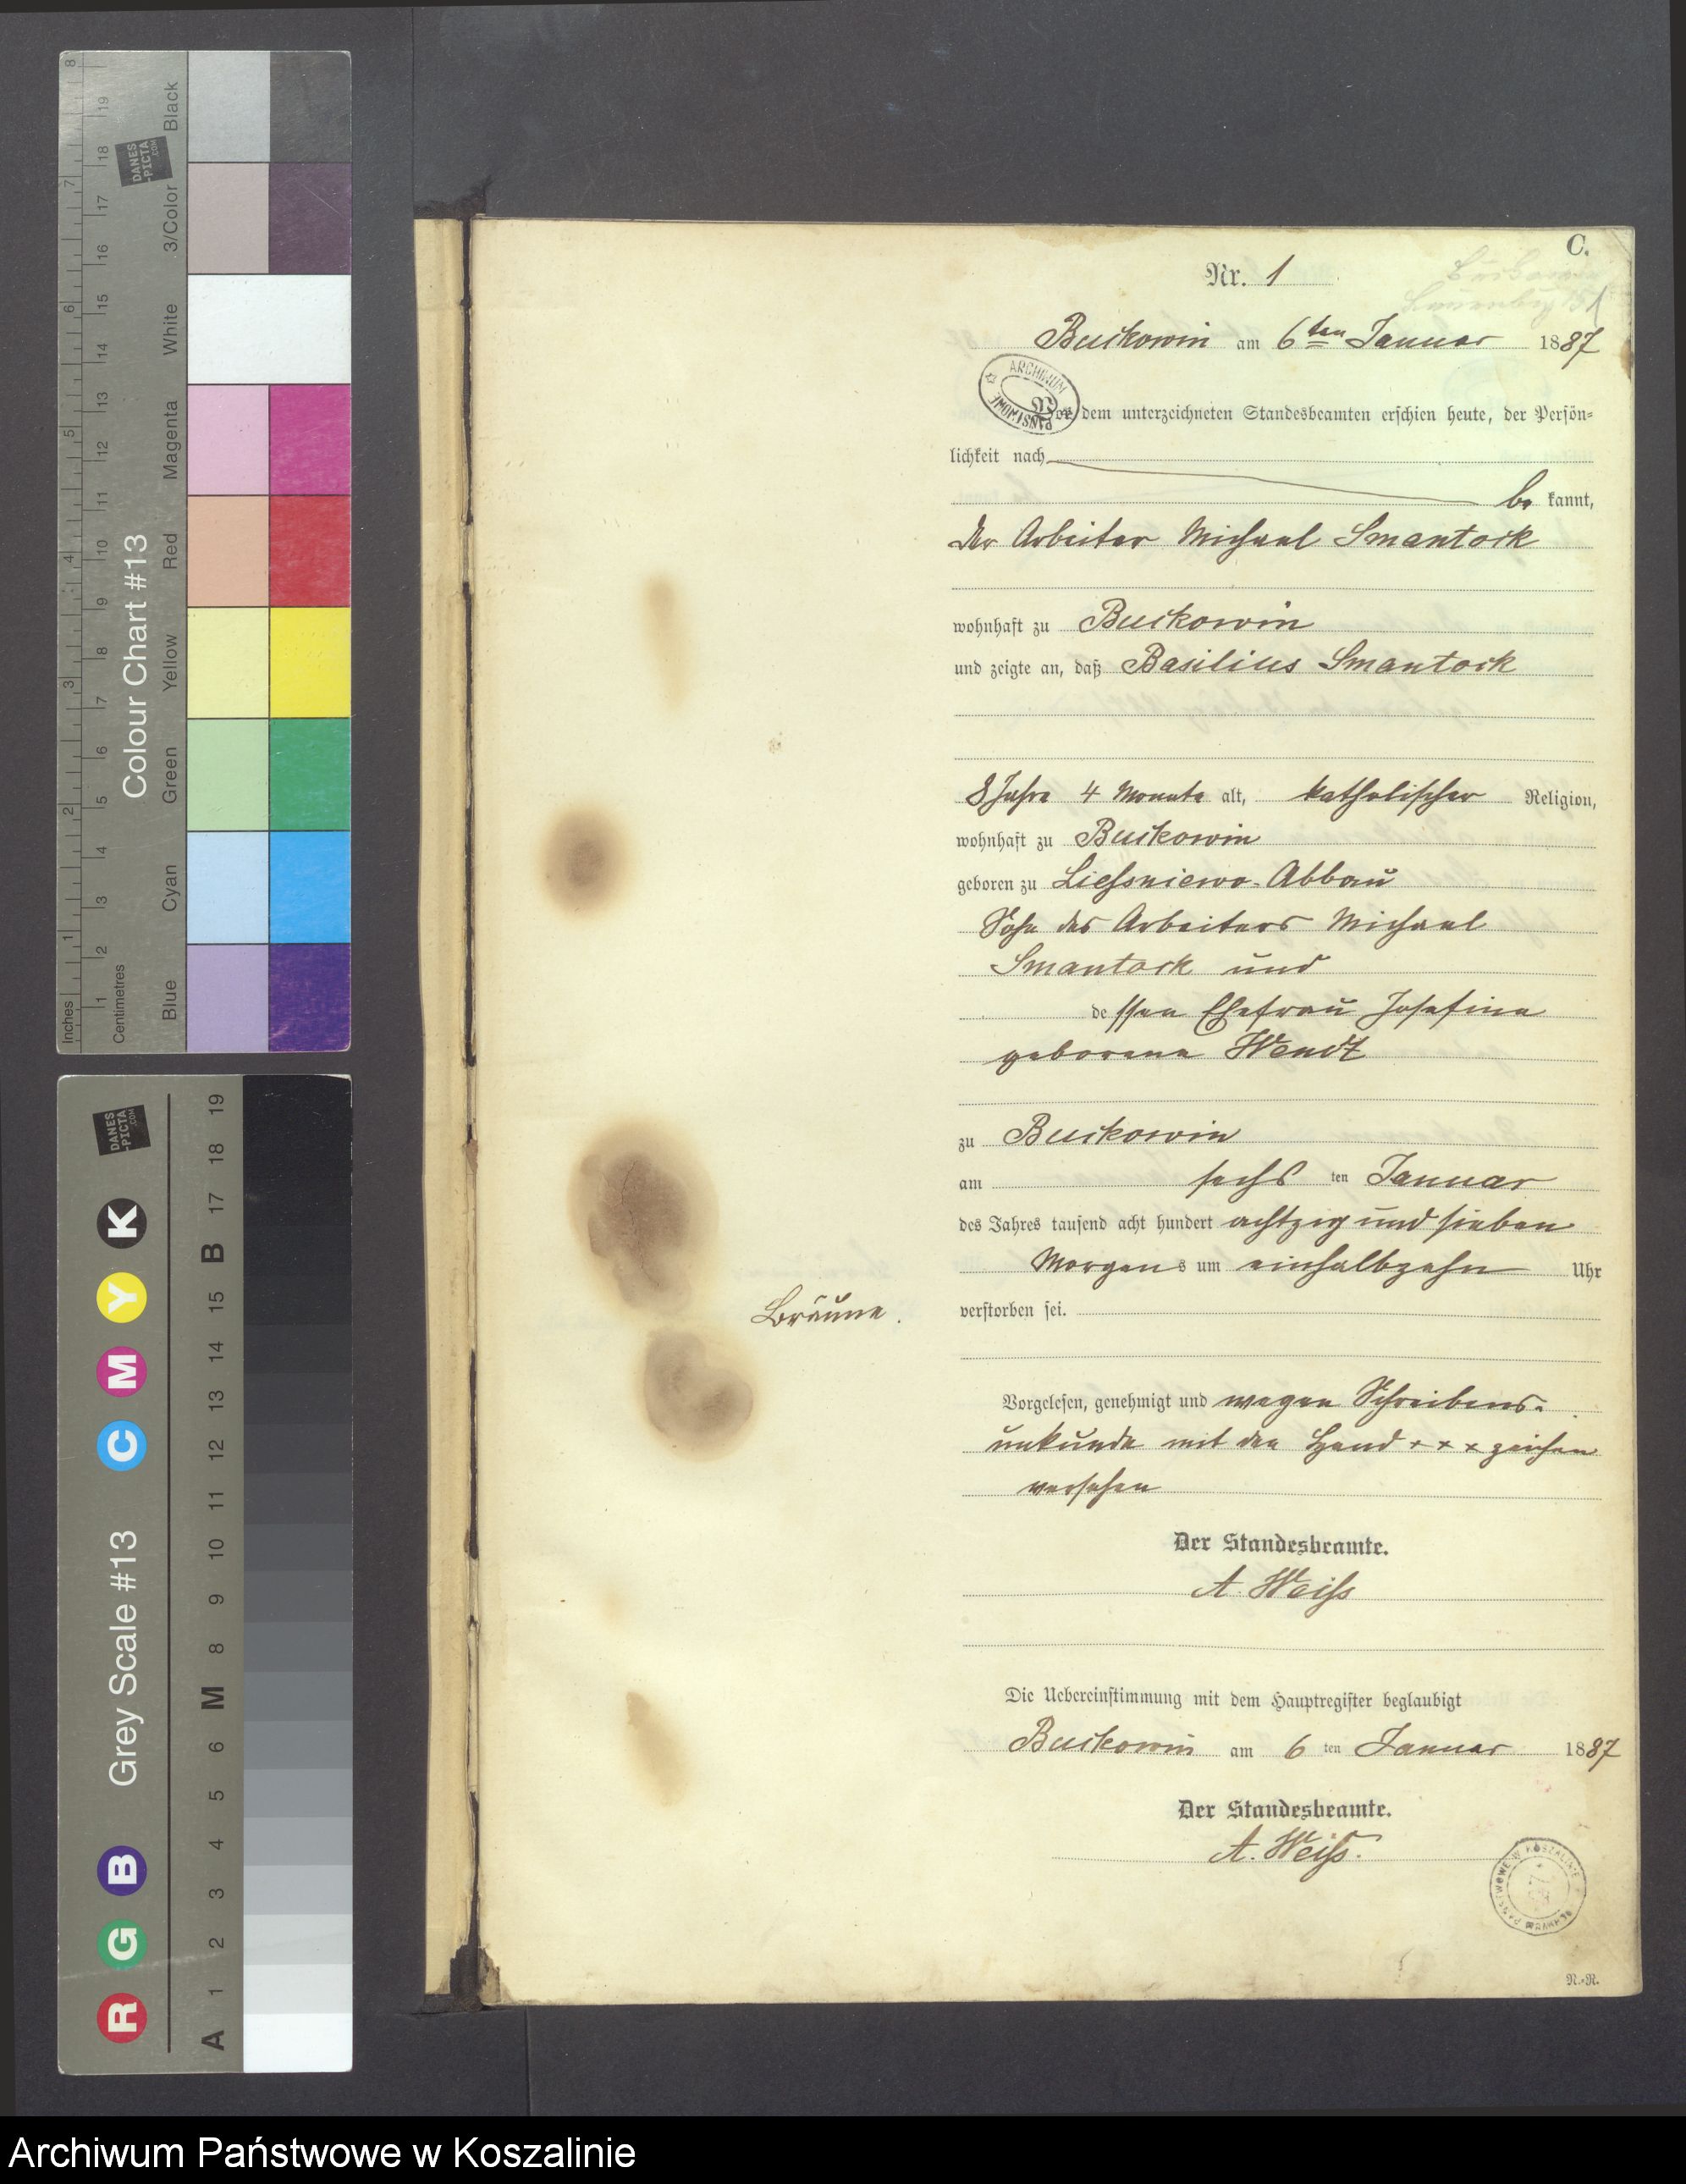 C.
Nr. 1
Buckowin am 6ten Januar 1887
ARCHIWUM PAŃSTWOWE
Vor dem unterzeichneten Standesbeamten erschien heute, der Persön-
lichkeit nach
be kannt,
der Arbeiter Michael Smantock
wohnhaft zu Buckowin
und zeigte an, daß Basilius Smantock
8 Jahre 4 Monate alt, katholischer Religion,
wohnhaft zu Buckowin
geboren zu Liessniewo-Abbau
Sohn des Arbeiters Michael
Smantock und
dessen Ehefrau Josefine
geborene Wendt
zu Buckowin
am sechs ten Januar
des Jahres tausend acht hundert achtzig und sieben
Morgens um einhalbzehn Uhr
verstorben sei.
Bräune.
Vorgelesen, genehmigt und wegen Schreibens-
unkunde mit den Hand + + + zeichen
versehen
Der Standesbeamte.
A. Weiss
Die Uebereinstimmung mit dem Hauptregister beglaubigt
Buckowin am 6 ten Januar 1887
Der Standesbeamte.
A. Weiss.
PAŃSTWOWE W KOSZALINIE
R.-R.
Colour Chart #13
Inches
Centimetres
Blue Cyan Green Yellow Red Magenta White 3/Color Black
1 2 3 4 5 6 7 8
1 2 3 4 5 6 7 8 9 10 11 12 13 14 15 16 17 18 19
DANES-PICTA.COM
Grey Scale #13
R G B C M Y K
A 1 2 3 4 5 6 M 8 9 10 11 12 13 14 15 B 17 18 19
DANES-PICTA.COM
Archiwum Państwowe w Koszalinie